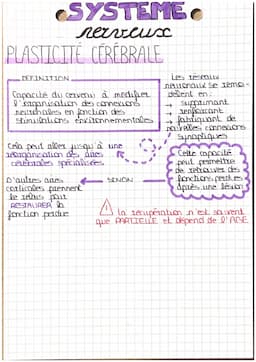 SYSTEME
nerveux
PLASTICITÉ CÉRÉBRALE
DÉFINITION
Capacité du cerveau à modifier
l'organisation des connexions
neuronales en fonction des
stimulations environnementales
Les réseaux
neuronaux se remo-
dèlent en :
→ supprimant
→ renforçant
→ fabriquant de
nouvelles connexions
synaptiques
Cela peut aller jusqu'à une
réorganisation des aires
cérébrales spécialisées
Cette capacité
peut permettre
de retrouver des
fonctions perdues
après une lésion
SINON
D'autres aires
corticales prennent
le relais pour
RESTAURER la
fonction perdue
! la récupération n'est souvent
que PARTIELLE et dépend de l'AGE